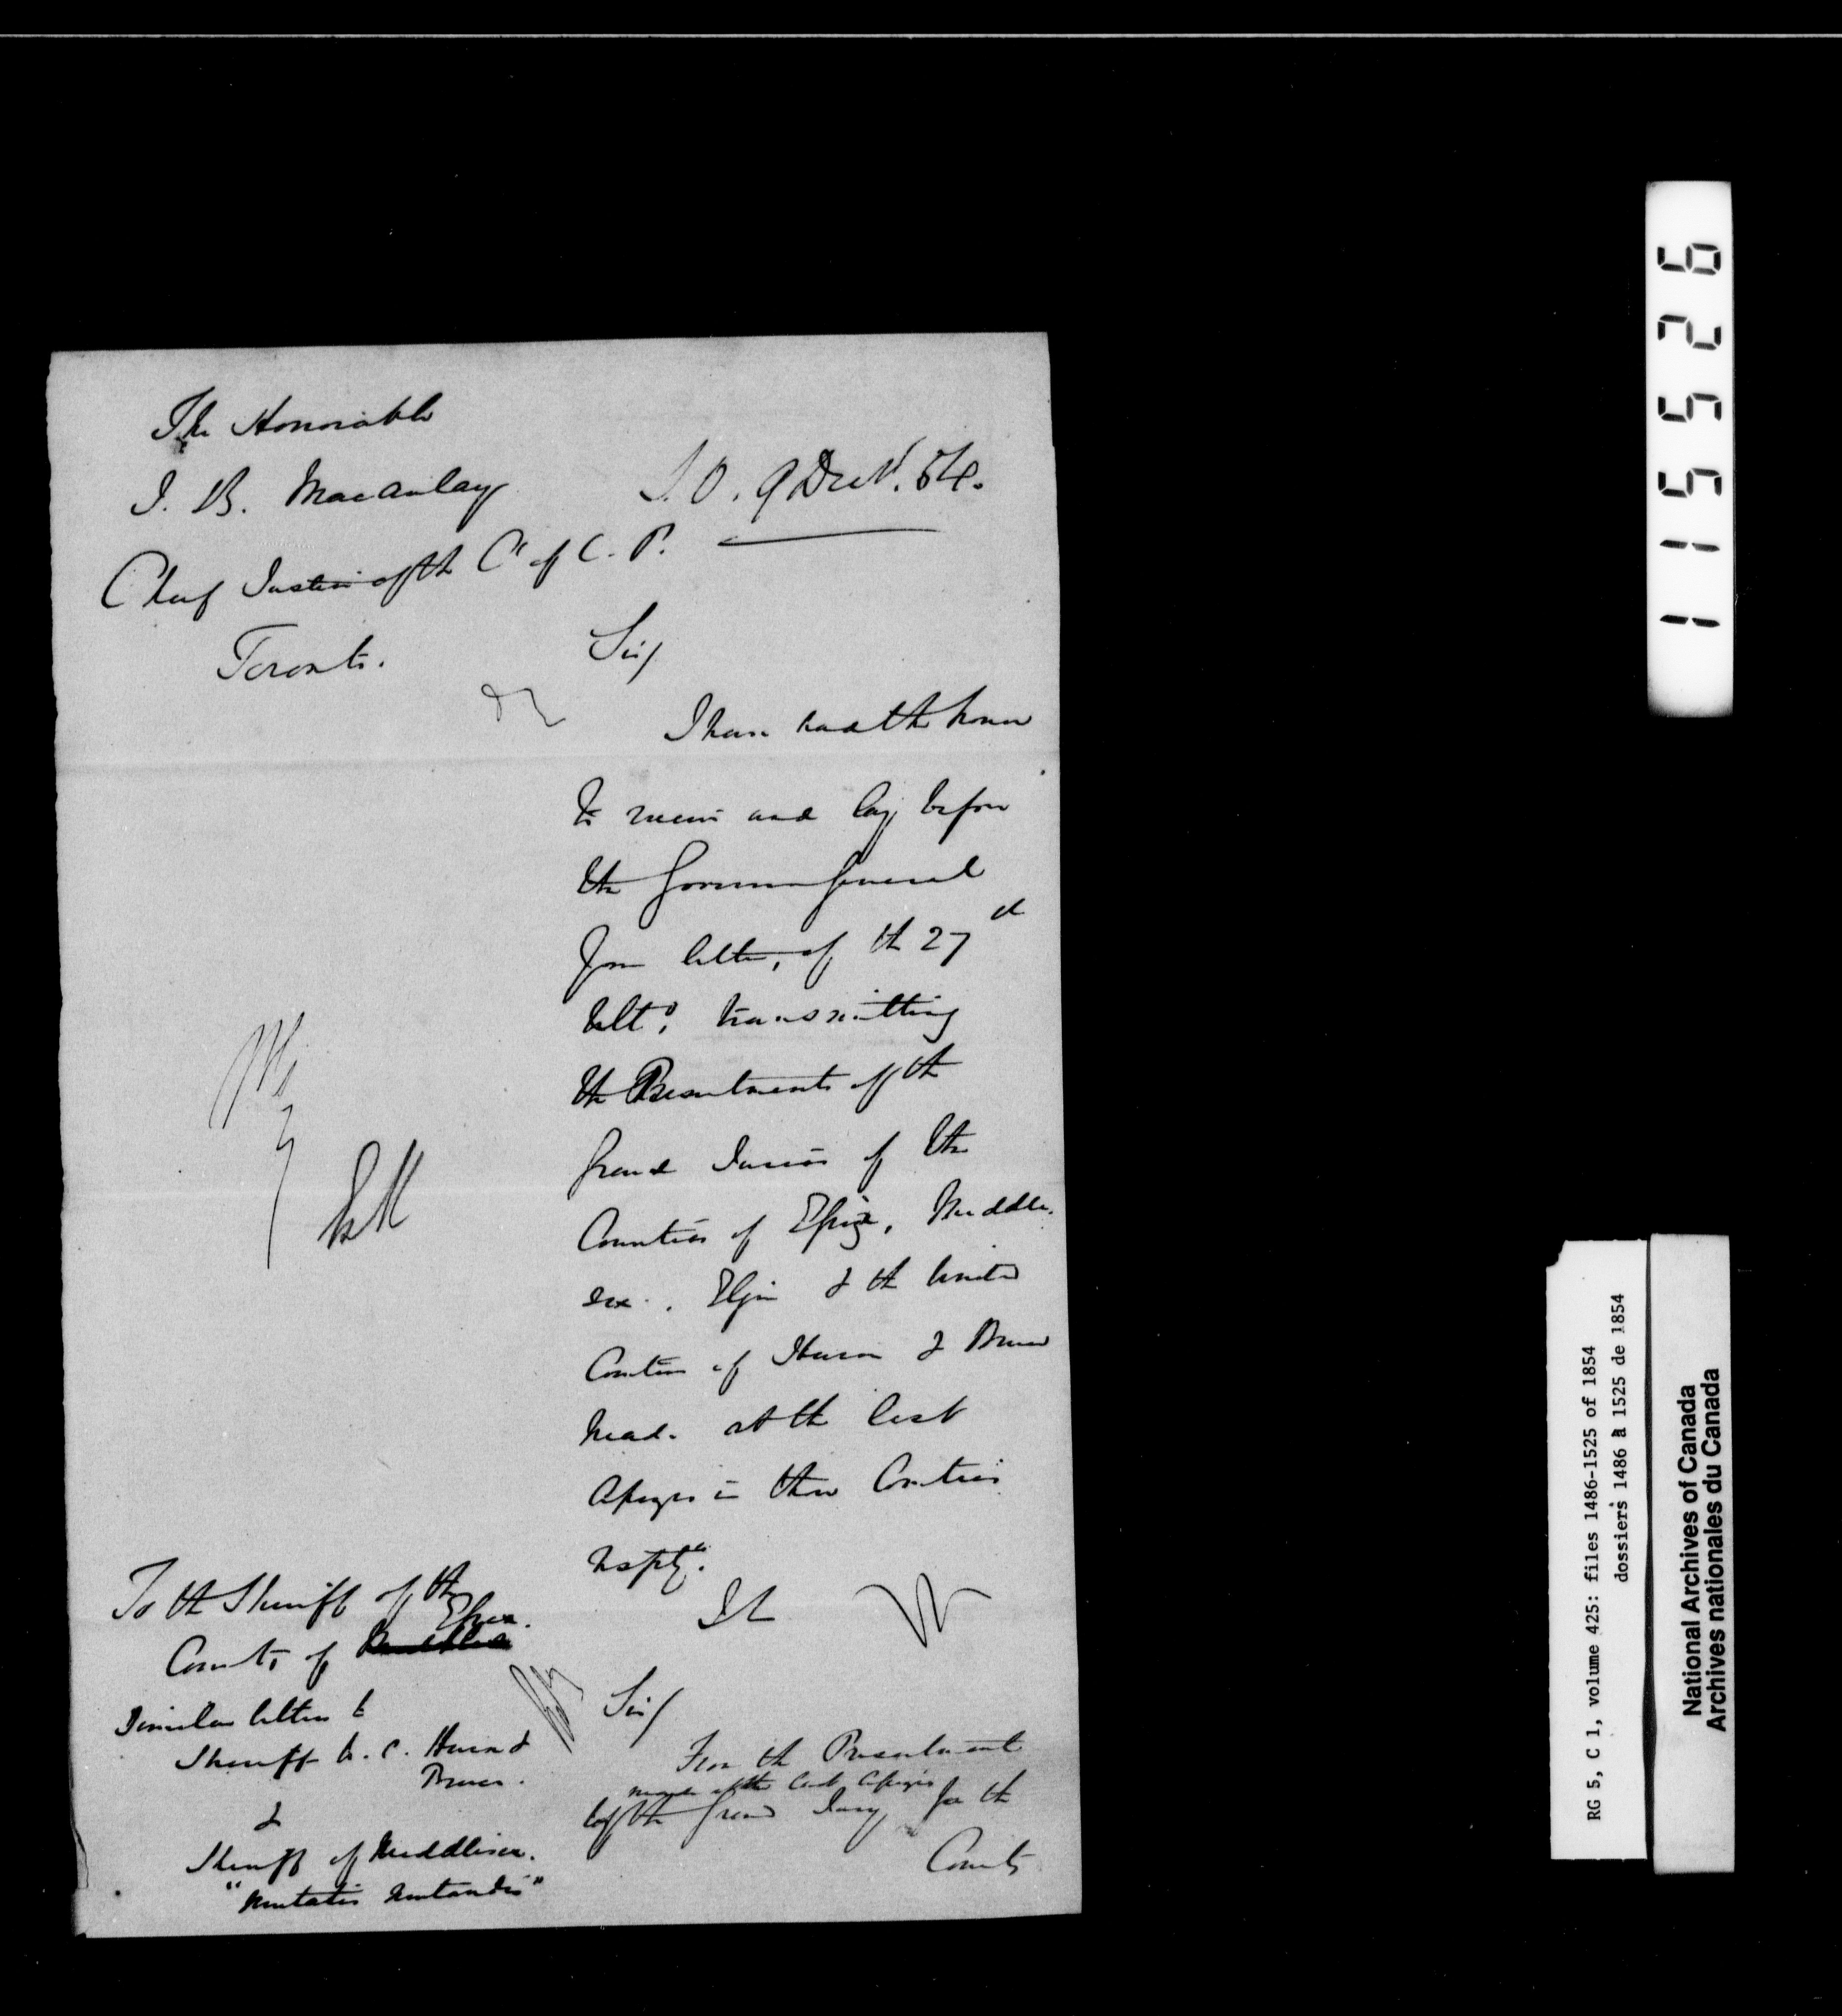 The Honorable
J. B. Macaulay
S. O. 9 Decr. 54.
Chief Justice of the Ct of C. P.
Toronto.
Sir/
I have had the honor
to receive and lay before
the Governor General
your letter, of the 27th
Ulto, transmitting
the Presentments of the
Grand Juries of the
Counties of Essex, Middle-
sex, Elgin & the United
Counties of Huron & Bruce
made at the last
Assizes in those Counties
resptly.
I h
To the Sheriff of the
County of Middlesex Essex.
Similar letters to
Sheriff U. C. Huron &
Bruce.
&
Sheriff of Middlesex.
"Mutatis Mutandis"
Sir/
From the Presentment
made at the last Assizes
by the Grand Jury for the
County
115526
RG 5, C 1, volume 425: files 1486-1525 of 1854
dossiers 1486 à 1525 de 1854
National Archives of Canada
Archives nationales du Canada